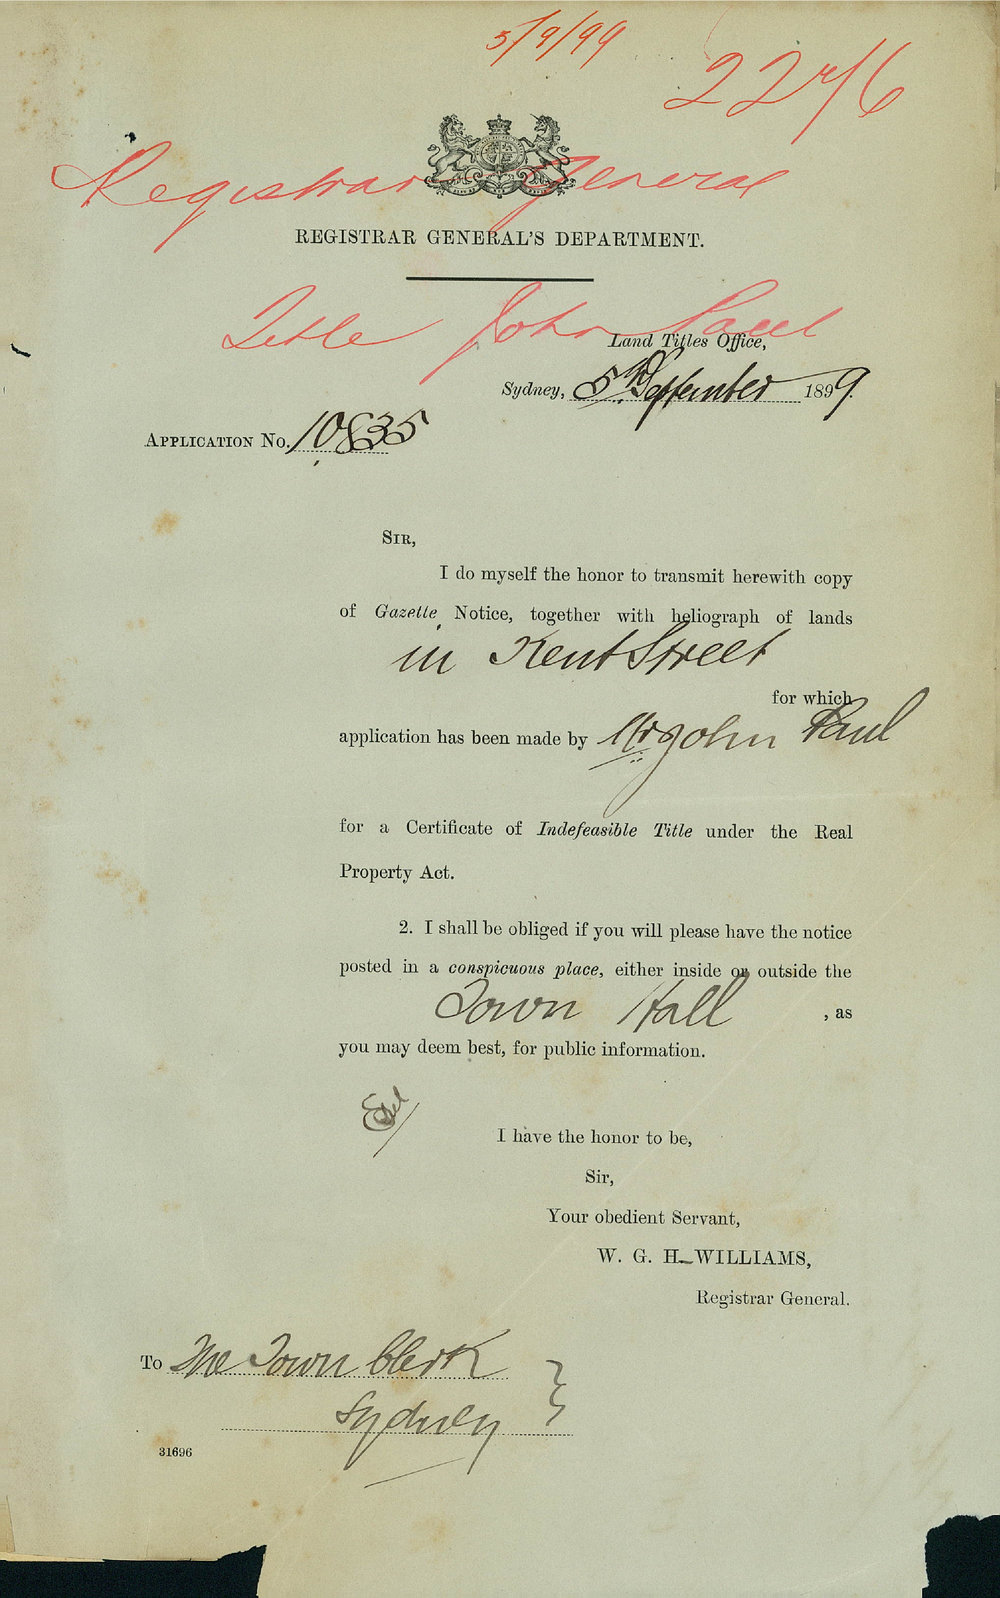 5/9/99
Registrar General
REGISTRAR GENERAL'S DEPARTMENT.
Title John Paul
Land Titles Office,
Sydney, 5th September 1899.
APPLICATION No. 10835
SIR,
I do myself the honor to transmit herewith copy
of Gazette Notice, together with heliograph of lands
in Kent Street
for which
application has been made by Mr John Paul
for a Certificate of Indefeasible Title under the Real
Property Act.
2. I shall be obliged if you will please have the notice
posted in a conspicuous place, either inside or outside the
Town Hall , as
you may deem best, for public information.
I have the honor to be,
Sir,
Your obedient Servant,
W. G. H. WILLIAMS,
Registrar General.
To The Town Clerk
Sydney
31696